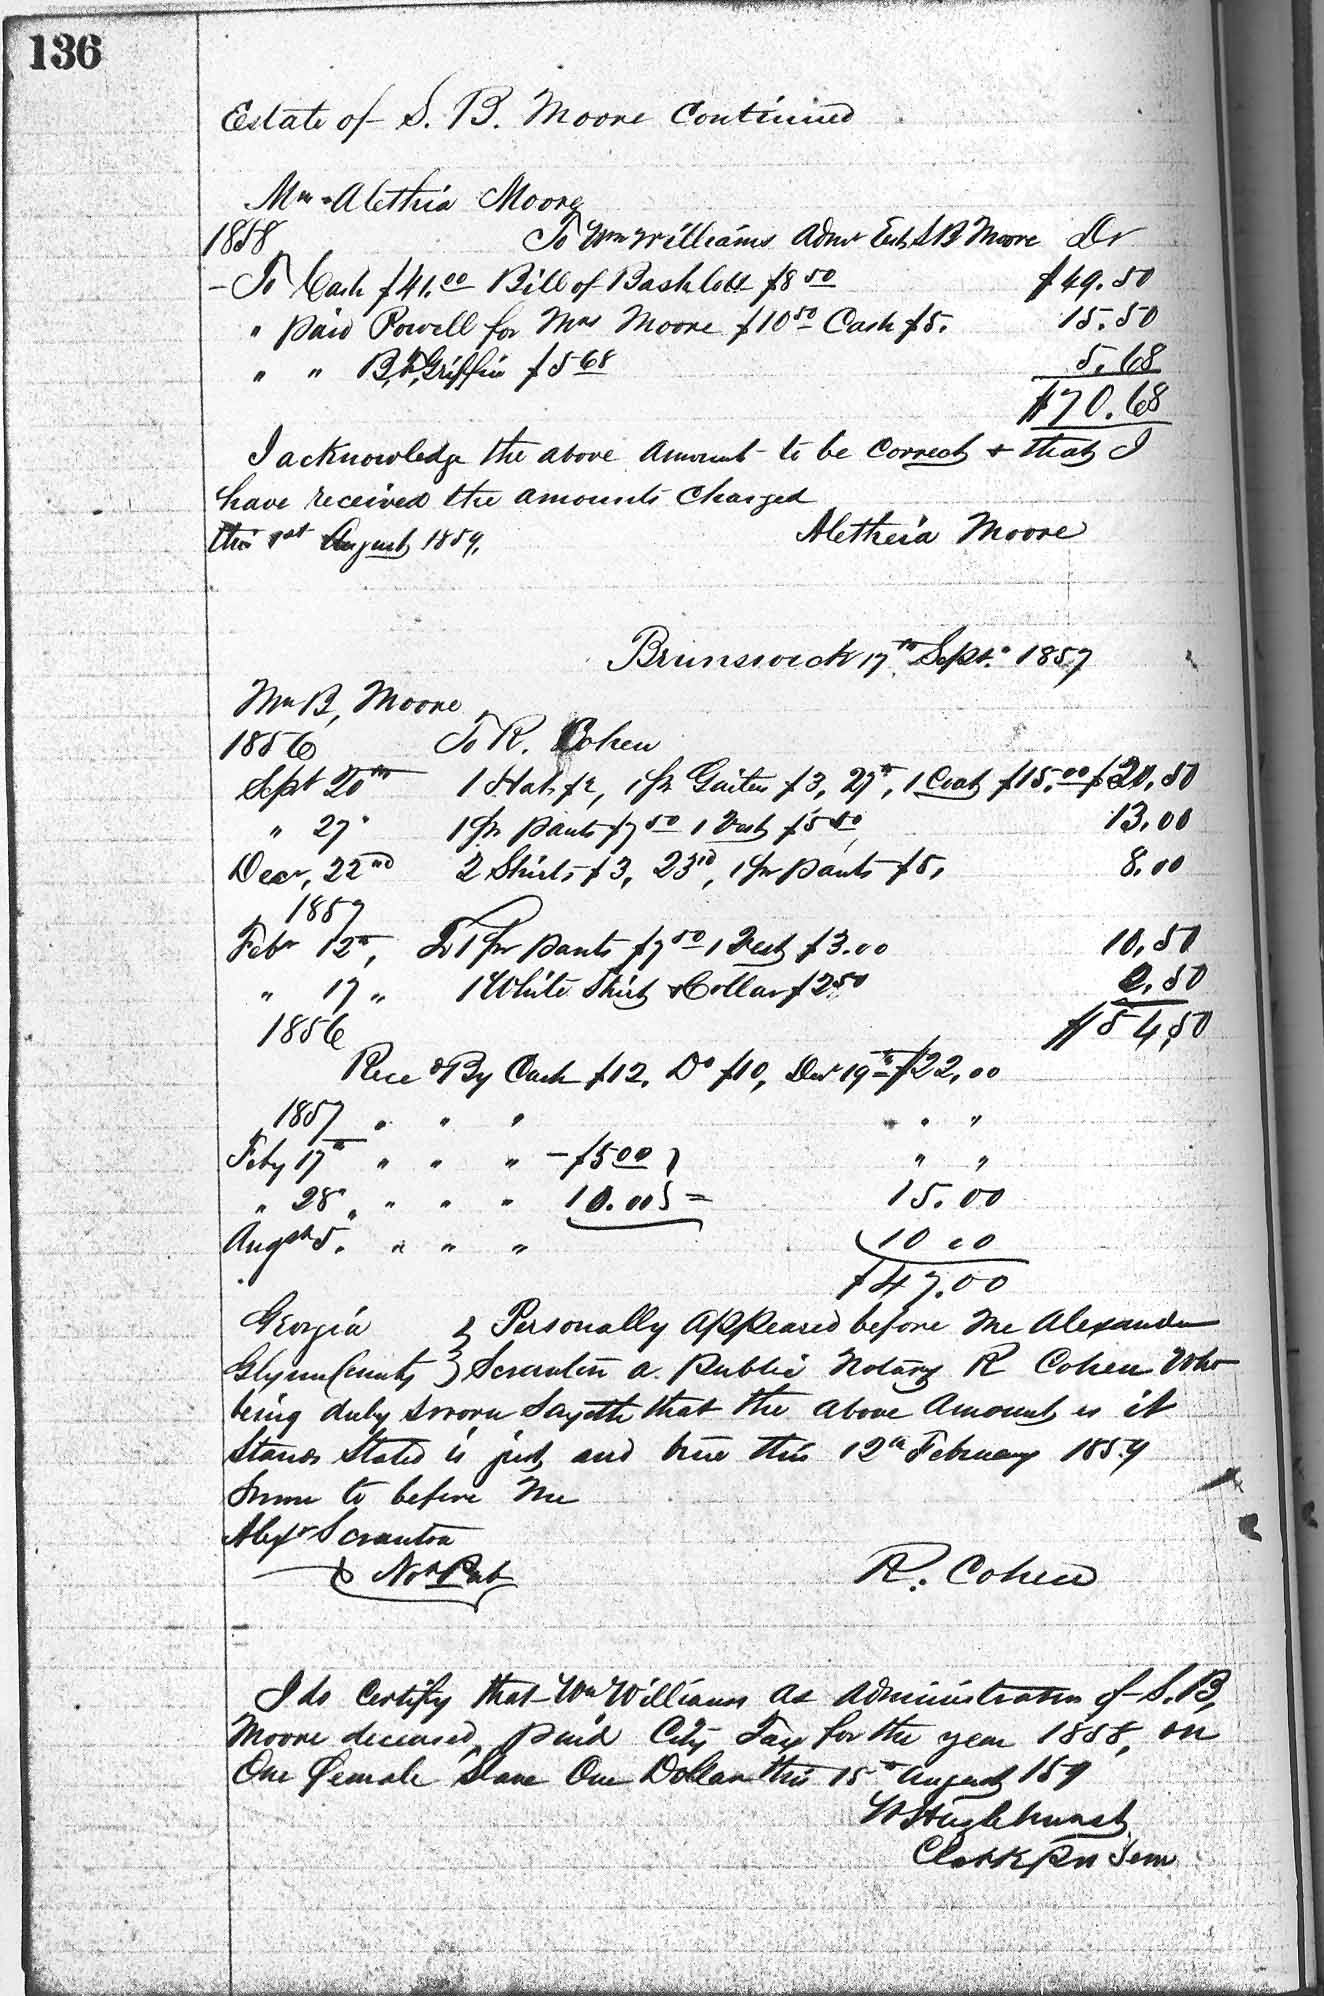 136
Estate of S. B. Moore Continued
Mrs Alethia Moore
1858 To Wm Williams Admr Est S B Moore Dr
- To Cash $41.00 Bill of Bashlott $8 50 $49.50
" paid Powell for Mrs Moore $10 50 Cash $5. 15.50
" " Griffin $5 68 5.68
$70.68
I acknowledge the above amount to be correct & that I
have received the amounts charged
this 1st August 1859. Alethia Moore
Brunswick 17th Sept. 1857
B. Moore
1856 To R. Cohen
Sept 20th 1 Hat $2, 1 pr Gaiters $3, 27th, 1 Coat $15.00 $20.50
" 27 " 1 pr pants $7 50 1 Vest $5 50 13.00
Decr, 22nd 2 Shirts $3, 23rd, 1 pr pants $5, 8.00
1857
Febr 12th, To 1 pr pants $7 50 1 Vest $3.00 10.50
" 17 " 1 White Shirt & Collar $2 50 2.50
1856 $54,50
Recd By Cash $12, Do $10, Decr 19th $22,00
1857 " " " " "
Feby 17th " " " - $5 00 } " "
" 28 " " " " 10.00 } = 15.00
Augst 5. " " " 10 00
$47.00
Georgia } Personally appeared before me Alexander
Glynn County } Scranton a public Notary R Cohen who
being duly sworn Sayeth that the above Amount as it
stands Stated is just and true this 12th February 1859
Sworn to before me
Alexr Scranton
Not Pub R. Cohen
I do certify that Wm Williams as administrator of S. B,
Moore deceased, paid City Tax for the year 1858, on
One female Slave One Dollar this 15th August 159
Hazlehurst
Clerk pro tem